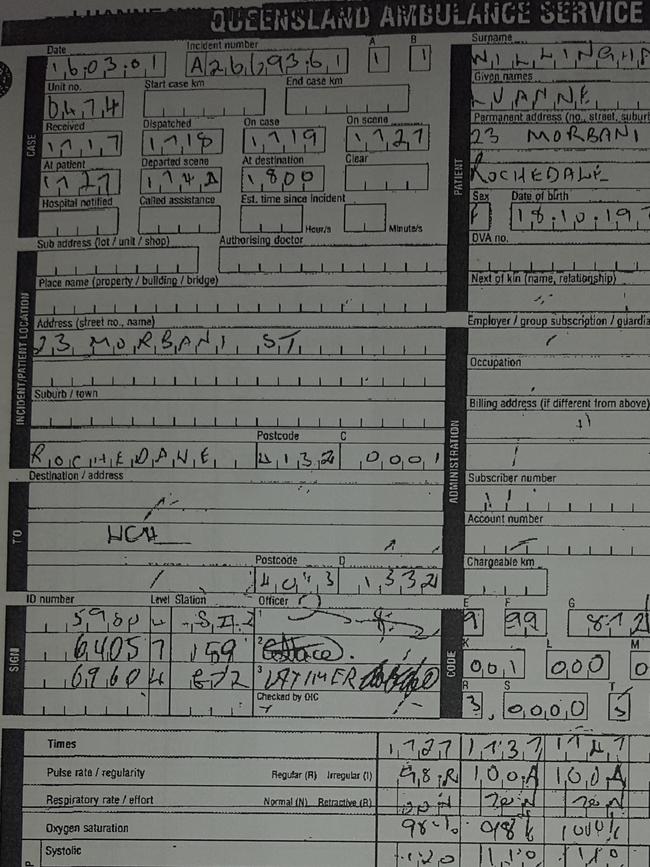 QUEENSLAND AMBULANCE SERVICE
Date Incident number A B
16.03.01 A266936.1 1 1
Unit no. Start case km End case km
0474
Received Dispatched On case On scene
1717 1718 1719 1727
At patient Departed scene At destination Clear
1727 1800
Hospital notified Called assistance Est. time since incident
Hour/s Minute/s
Sub address (lot / unit / shop) Authorising doctor
Place name (property / building / bridge)
Address (street no., name)
23 MORBANI ST
Suburb / town
Postcode C
ROCHEDANE 4132 0001
Destination / address
Postcode D
1332
ID number Level Station Officer
1
64057 159 2
69604 3 LATIMER
Checked by OIC
CASE
INCIDENT/PATIENT LOCATION
TO
SIGN
Surname
Given names
LUANNE
Permanent address (no., street, suburb
23 MORBANI
ROCHEDALE
Sex Date of birth
F 18.10.19
DVA no.
Next of kin (name, relationship)
Employer / group subscription / guardia
Occupation
Billing address (if different from above)
Subscriber number
Account number
Chargeable km
PATIENT
ADMINISTRATION
CODE
E F G
9 99
K L M
001 000 0
R S T
3 0000
Times 1727 1737 1747
Pulse rate / regularity Regular (R) Irregular (I) 98.R
Respiratory rate / effort Normal (N) Retractive (R) 20 N 20 N 20 N
Oxygen saturation 98% 98% 100%
Systolic 120